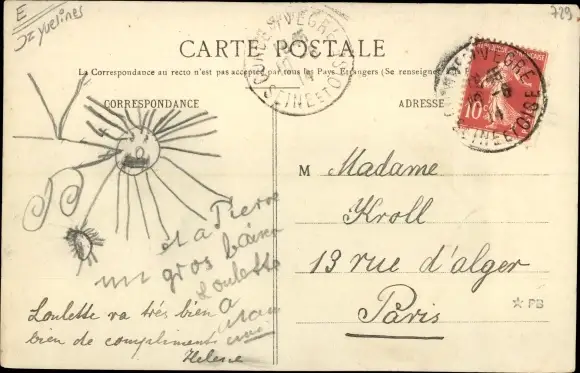 E
Yvelines
729
CARTE POSTALE
La Correspondance au recto n'est pas acceptée par tous les Pays Etrangers (Se renseigner
CORRESPONDANCE
ADRESSE
SEINE ET OISE
10
SEINE ET OISE
et a Pierre
un gros baiser
Loulette
a
Loulette va très bien
bien de compliment
Helene
M Madame
Kroll
13 rue d'alger
Paris
PB